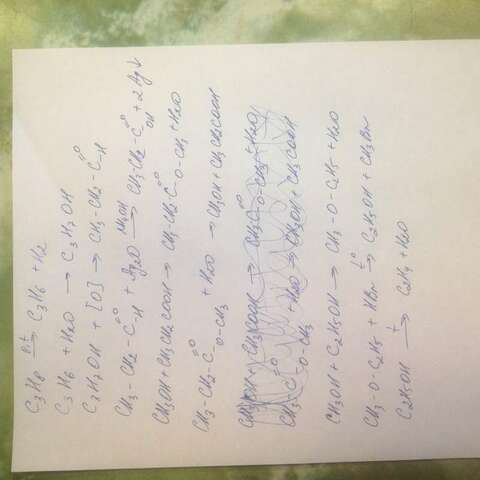 C3H8 —p,t→ C3H6 + H2
C3H6 + H2O → C3H7OH
C3H7OH + [O] → CH3-CH2-C=O-H
CH3-CH2-C=O-H + Ag2O —NH4OH→ CH3-CH2-C=O OH + 2Ag↓
CH3OH + CH3CH2COOH → CH3-CH2-C=O-O-CH3 + H2O
CH3-CH2-C=O-O-CH3 + H2O → CH3OH + CH3CH2COOH
CH3OH + CH3COOH → CH3C=O-O-CH3 + H2O
CH3-C=O-O-CH3 + H2O → CH3OH + CH3COOH
CH3OH + C2H5OH → CH3-O-C2H5 + H2O
CH3-O-C2H5 + HBr —t°→ C2H5OH + CH3Br
C2H5OH —t→ C2H4 + H2O